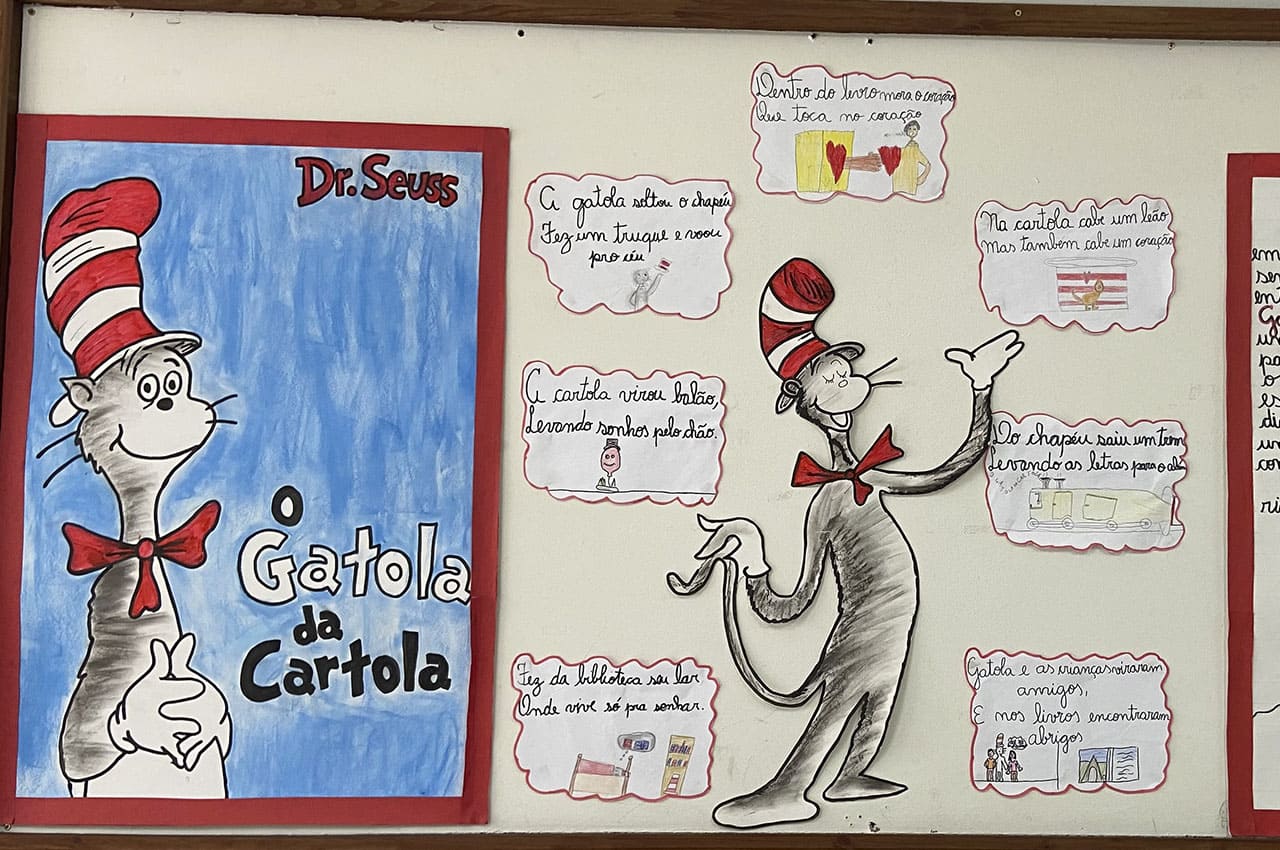 Dr. Seuss
O
Gatola
da
Cartola
Dentro do livro mora o coração
Que toca no coração
A gatola soltou o chapéu
Fez um truque e voou
pro céu
Na cartola cabe um leão
Mas também cabe um coração
A cartola virou balão,
Levando sonhos pelo chão.
Do chapéu saiu um trem
Levando as letras para o
Fez da biblioteca seu lar
Onde vive só pra sonhar.
Gatola e as crianças viraram
amigos,
E nos livros encontraram
abrigos
em
ser
en
Ga
um
pa
o
es
di
un
con
ri